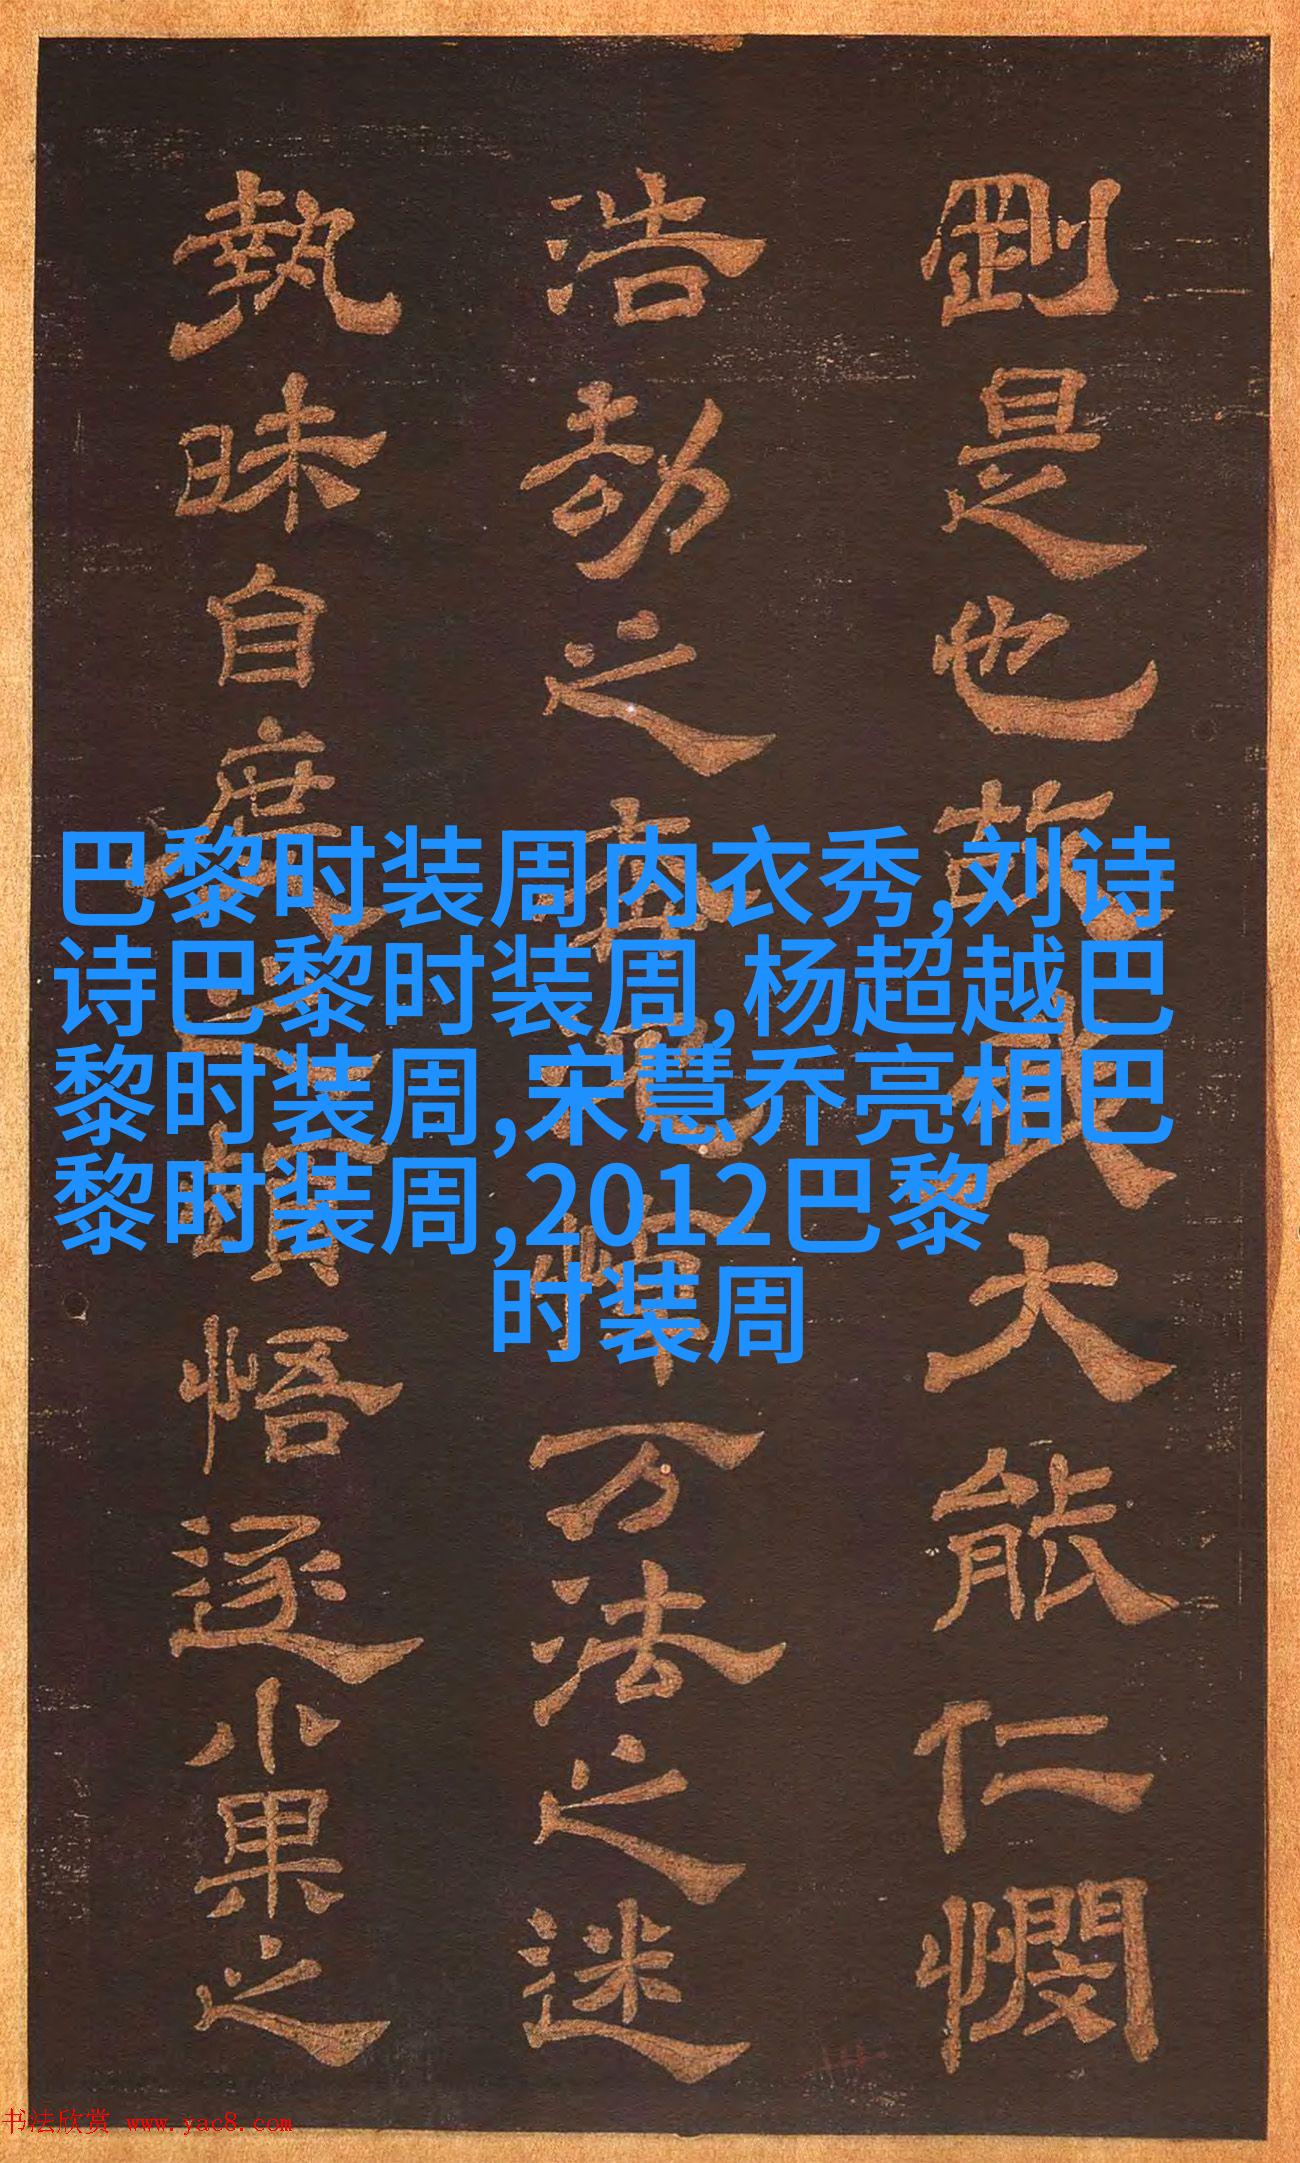 剛是也故大能仁憫
浩劫之万法之迷
執昧自度悟逐小果之
巴黎时装周内衣秀,刘诗
诗巴黎时装周,杨超越巴
黎时装周,宋慧乔亮相巴
黎时装周,2012巴黎
时装周
书法欣赏 www.yac8.com